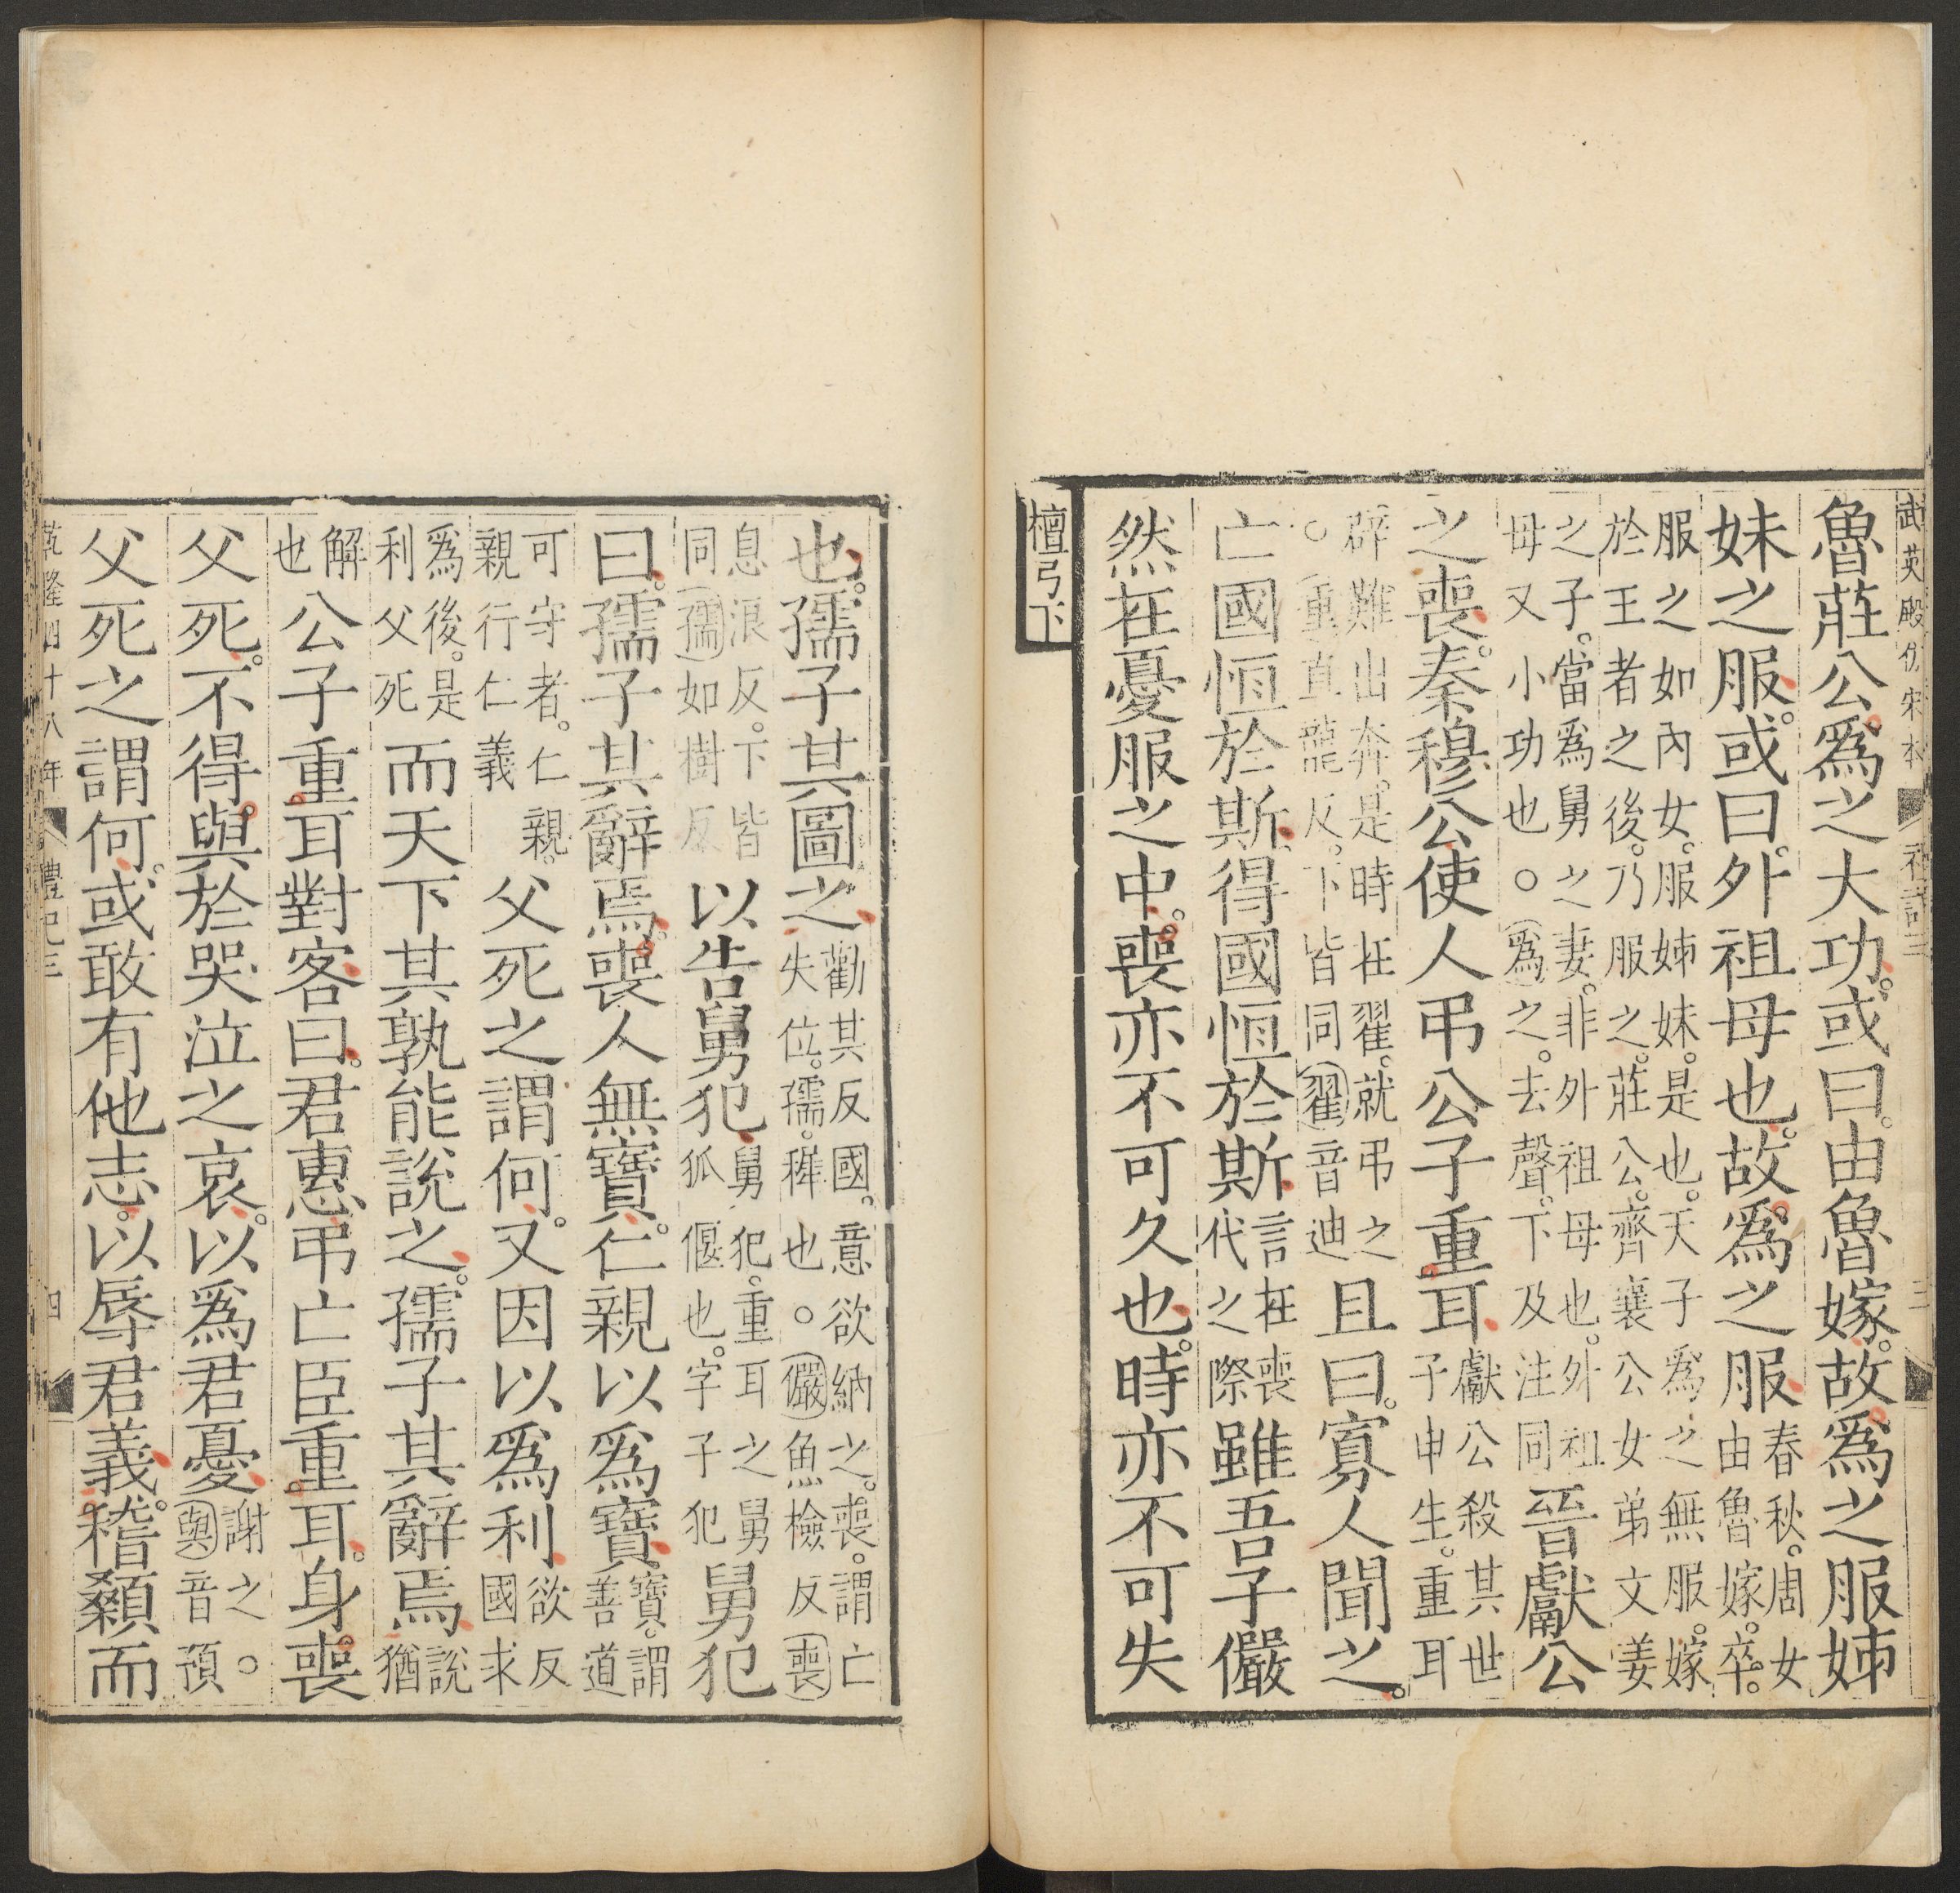 武英殿仿宋本　禮記三　三
魯莊公爲之大功。或曰。由魯嫁。故爲之服姊
妹之服。或曰。外祖母也。故爲之服春秋。周女由魯嫁。卒。
服之如內女。服姊妹。是也。天子爲之無服。嫁於王者之後。乃服之。莊公。齊襄公女弟文姜
之子。當爲舅之妻。非外祖母也。外祖母又小功也○爲之。去聲。下及注同晉獻公
之喪。秦穆公使人弔公子重耳獻公殺其世子申生。重耳
辟難出奔。是時在翟。就弔之○重直龍反。下皆同翟音迪且曰。寡人聞之。
亡國恆於斯。得國恆於斯言在喪代之際雖吾子儼
然在憂服之中。喪亦不可久也。時亦不可失
檀弓下
也。孺子其圖之勸其反國。意欲納之。喪。謂亡失位。孺。稺也○儼魚檢反喪
息浪反。下皆同孺如樹反以告舅犯舅犯。重耳之舅狐偃也。字子犯舅犯
曰。孺子其辭焉。喪人無寶。仁親以爲寶寶。謂善道
可守者。仁親。親行仁義父死之謂何。又因以爲利欲反國求
爲後。是利父死而天下其孰能說之。孺子其辭焉說猶
解也公子重耳對客曰。君惠弔亡臣重耳。身喪
父死。不得與於哭泣之哀。以爲君憂謝之○與音預
父死之謂何。或敢有他志。以辱君義。稽顙而
乾隆四十八年　禮記三　四